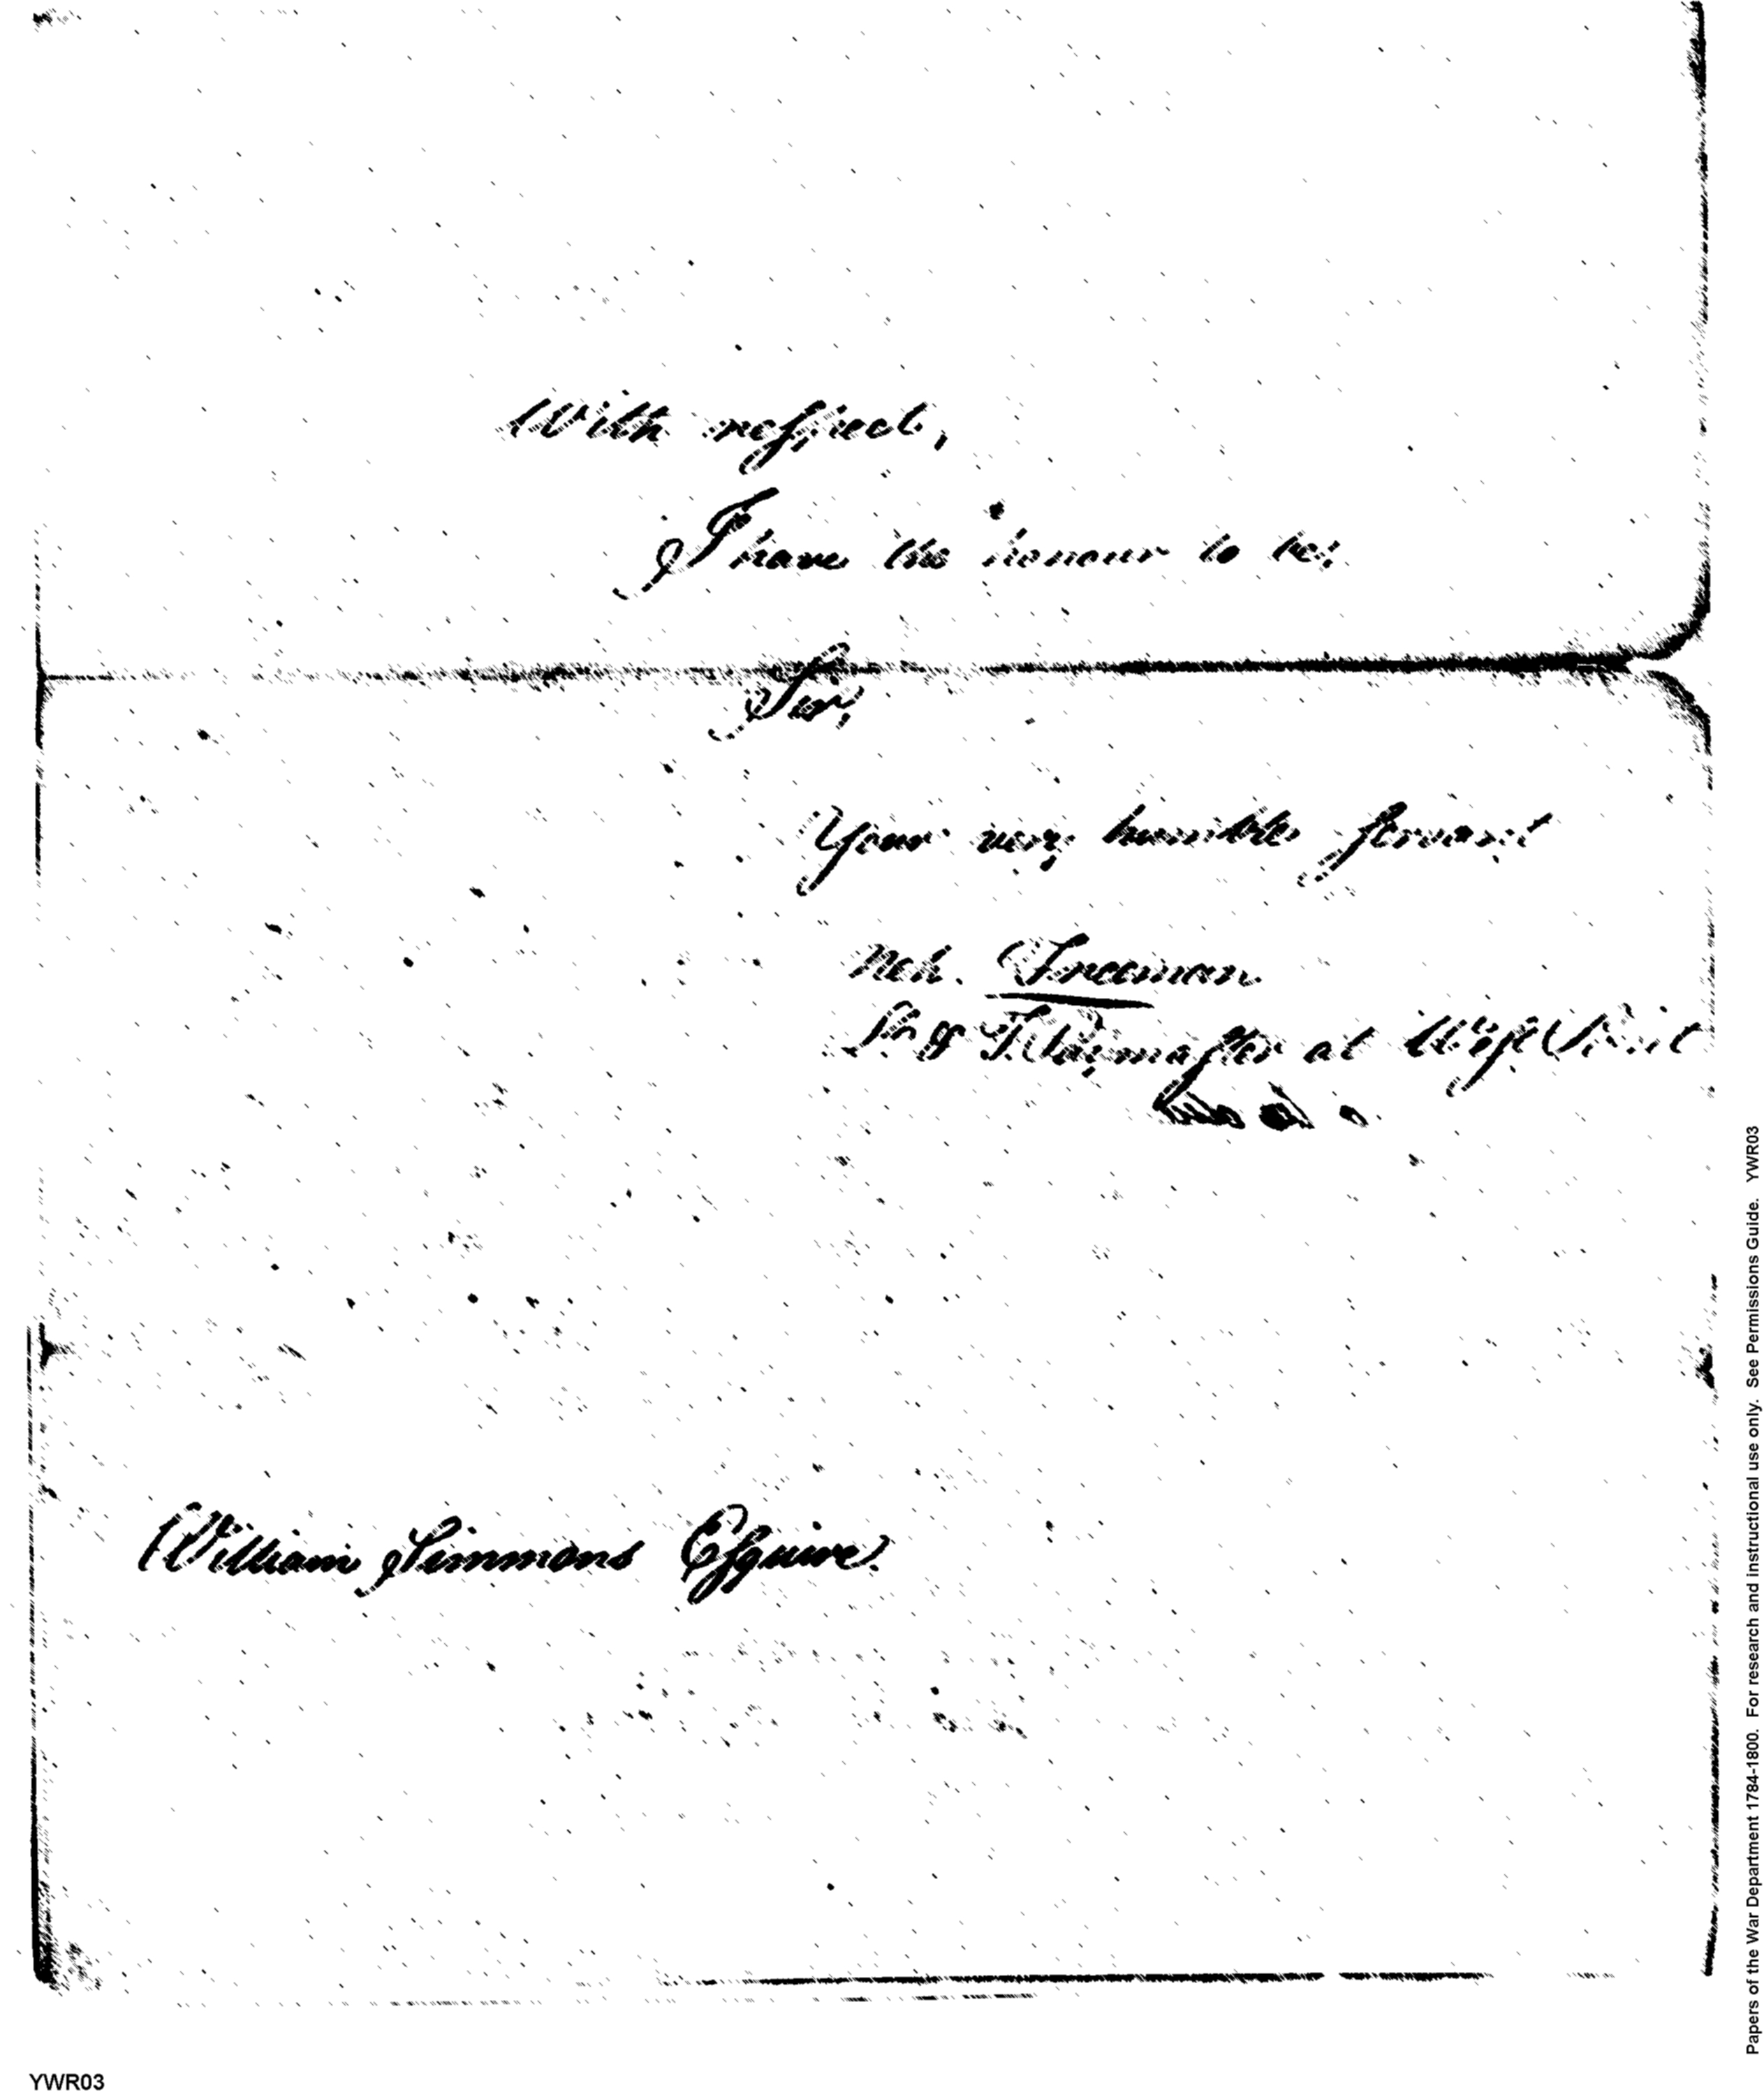 With respect,
I have the honour to be,
Sir,
Your very humble servant
Neh. Freeman
Paymaster at West Point
William Simmons Esquire.
YWR03
Papers of the War Department 1784-1800. For research and instructional use only. See Permissions Guide. YWR03